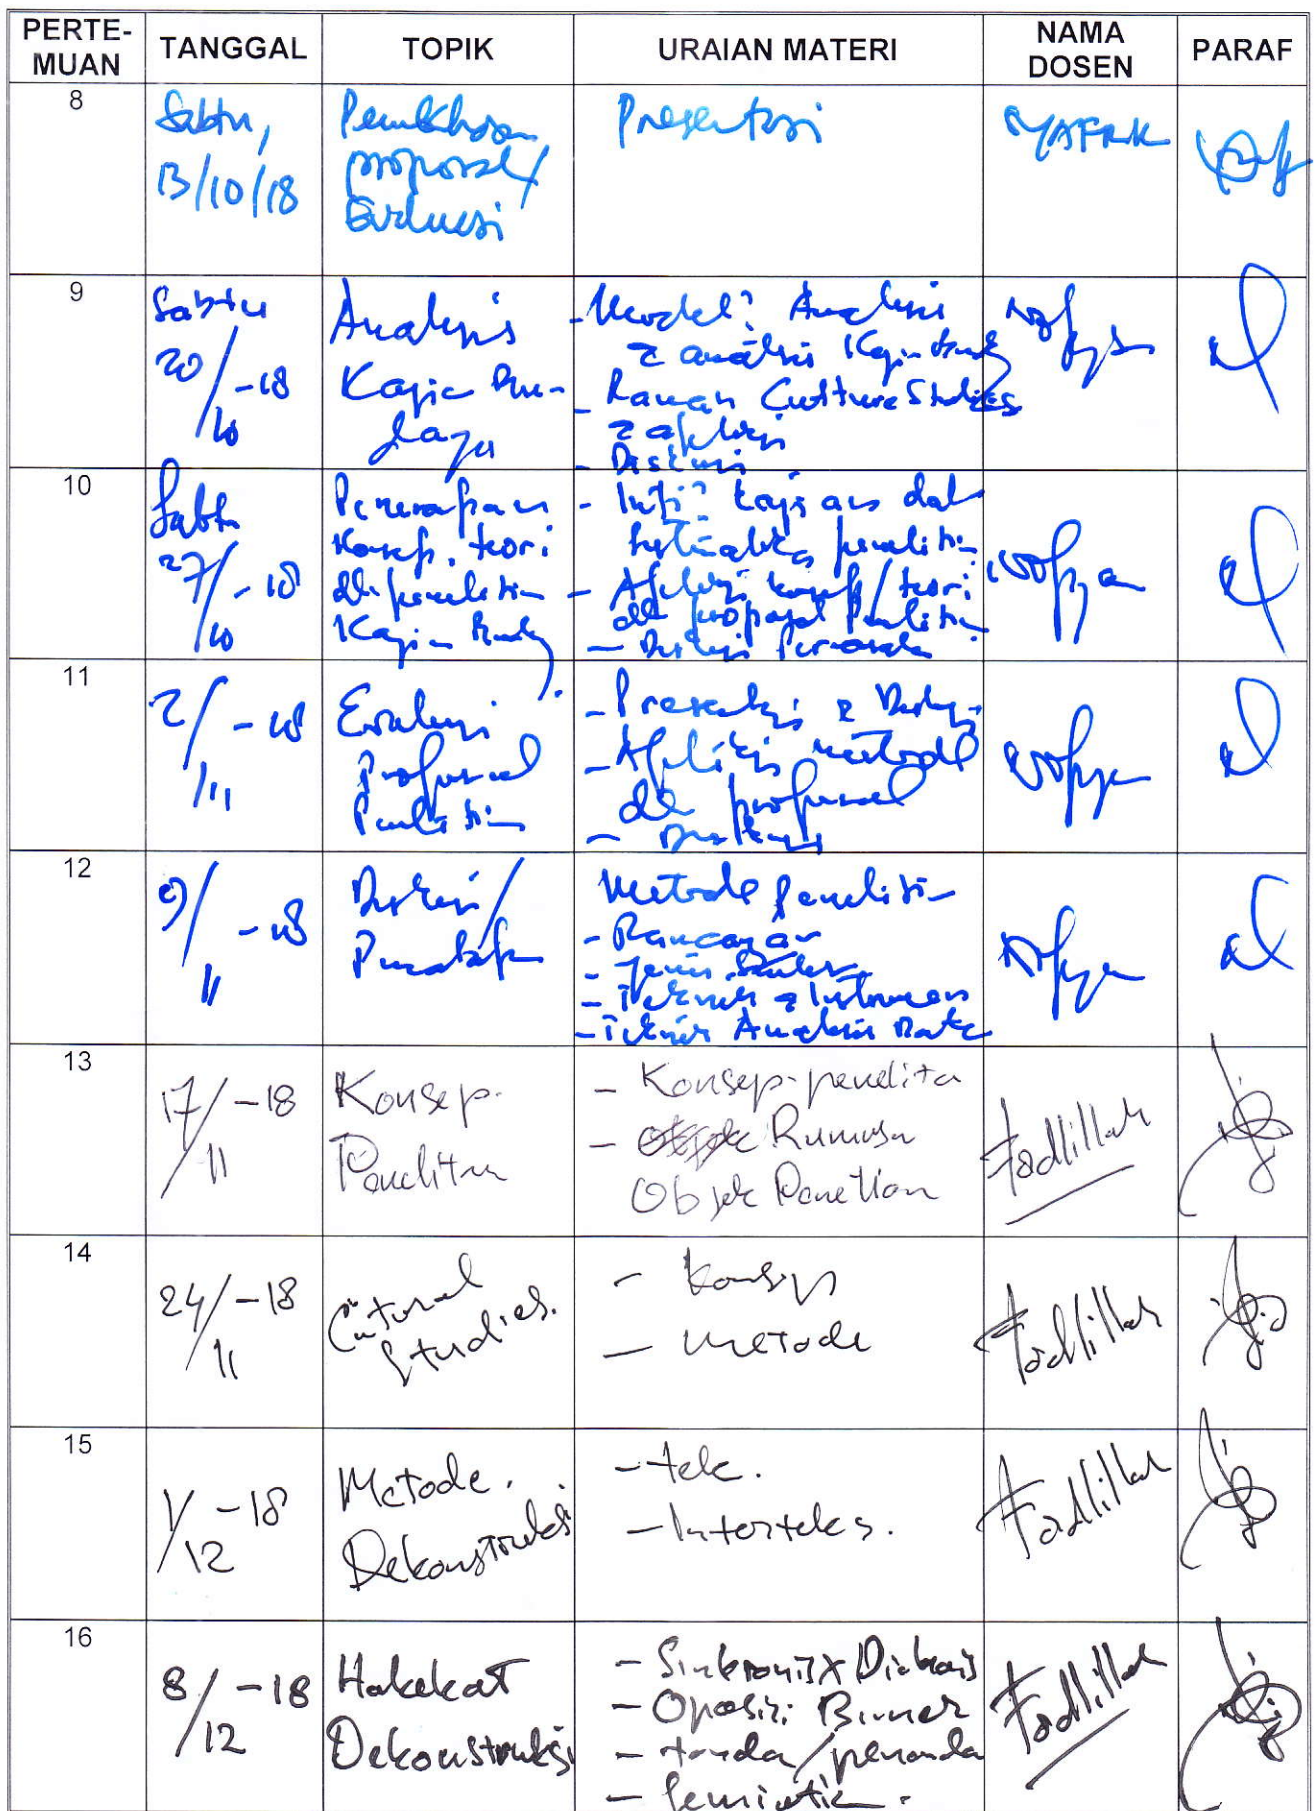 PERTE-
MUAN
TANGGAL
TOPIK
URAIAN MATERI
NAMA
DOSEN
PARAF
8
Sabtu,
13/10/18
proposal/
Evaluasi
Presentasi
9
Sabtu
20/10 -18
Analisis
Kajian Bu-
daya
- Model² Analisis
- Ragam Culture Studies
- Diskusi
10
Sabtu
27/10 -18
Penerapan
Konsep, teori
dlm penelitian
Kajian Buday
- Aplikasi konsep/teori
proposal Penelitian
11
2/11 -18
Evaluasi
Proposal
Penelitian
- Presentasi & Diskusi
- Aplikasi metode
dlm proposal
- Diskusi
12
9/11 -18
Diskusi/
Metode penelitian
- Rancangan
- Jenis Sumber
- Teknik & Instrumen
- Teknis Analisis Data
13
17/11 -18
Konsep.
Penelitian
- Konsep penelitia
- Rumusan
Objek Penelitian
Fadlillah
14
24/11 -18
Cultural
Studies.
- Konsep
- metode
Fadlillah
15
1/12 -18
Metode.
Dekonstruksi
- teks.
- Interteks.
Fadlillah
16
8/12 -18
Hakekat
Dekonstruksi
- Sinkronis x Diakronis
- Oposisi Binner
- tanda/penanda
- Semiotik.
Fadlillah